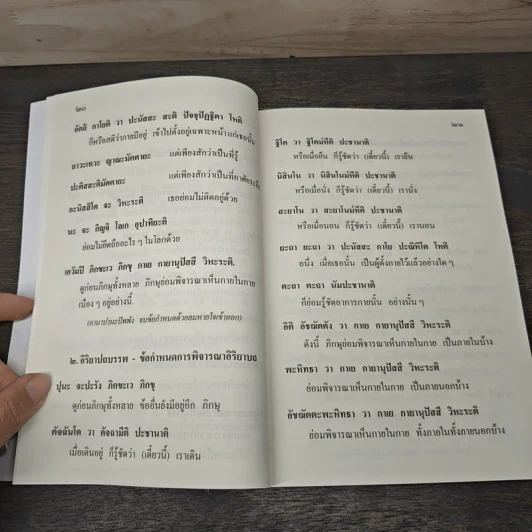 ๒๐
อัตถิ กาโยติ วา ปะนัสสะ สะติ ปัจจุปัฏฐิตา โหติ
ก็หรือสติว่ากายมีอยู่ เข้าไปตั้งอยู่เฉพาะหน้าแก่เธอนั้น
ยาวะเทวะ ญาณะมัตตายะ แต่เพียงสักว่าเป็นที่รู้
ปะติสสะติมัตตายะ แต่เพียงสักว่าเป็นที่อาศัยระลึก
อะนิสสิโต จะ วิหะระติ เธอย่อมไม่ติดอยู่ด้วย
นะ จะ กิญจิ โลเก อุปาทิยะติ
ย่อมไม่ยึดถืออะไร ๆ ในโลกด้วย
เอวัมปิ ภิกขะเว ภิกขุ กาเย กายานุปัสสี วิหะระติ.
ดูก่อนภิกษุทั้งหลาย ภิกษุย่อมพิจารณาเห็นกายในกาย
เนือง ๆ อยู่อย่างนี้.
(อานาปานะปัพพัง จบข้อกำหนดด้วยลมหายใจเข้าออก)
๒. อิริยาปถบรรพ - ข้อกำหนดการพิจารณาอิริยาบถ
ปุนะ จะปะรัง ภิกขะเว ภิกขุ
ดูก่อนภิกษุทั้งหลาย ข้ออื่นยังมีอยู่อีก ภิกษุ
คัจฉันโต วา คัจฉามีติ ปะชานาติ
เมื่อเดินอยู่ ก็รู้ชัดว่า (เดี๋ยวนี้) เราเดิน
๒๑
ฐิโต วา ฐิโตมฺหีติ ปะชานาติ
หรือเมื่อยืน ก็รู้ชัดว่า (เดี๋ยวนี้) เรายืน
นิสินโน วา นิสินโนมฺหีติ ปะชานาติ
หรือเมื่อนั่ง ก็รู้ชัดว่า (เดี๋ยวนี้) เรานั่ง
สะยาโน วา สะยาโนมฺหีติ ปะชานาติ
หรือเมื่อนอน ก็รู้ชัดว่า (เดี๋ยวนี้) เรานอน
ยะถา ยะถา วา ปะนัสสะ กาโย ปะณิหิโต โหติ
อนึ่ง เมื่อเธอนั้น เป็นผู้ตั้งกายไว้แล้วอย่างใด ๆ
ตะถา ตะถา นัมปะชานาติ
ก็ย่อมรู้ชัดอาการกายนั้น อย่างนั้น ๆ
อิติ อัชฌัตตัง วา กาเย กายานุปัสสี วิหะระติ
ดังนี้ ภิกษุย่อมพิจารณาเห็นกายในกาย เป็นภายในบ้าง
พะหิทธา วา กาเย กายานุปัสสี วิหะระติ
ย่อมพิจารณาเห็นกายในกาย เป็นภายนอกบ้าง
อัชฌัตตะพะหิทธา วา กาเย กายานุปัสสี วิหะระติ
ย่อมพิจารณาเห็นกายในกาย ทั้งภายในทั้งภายนอกบ้าง